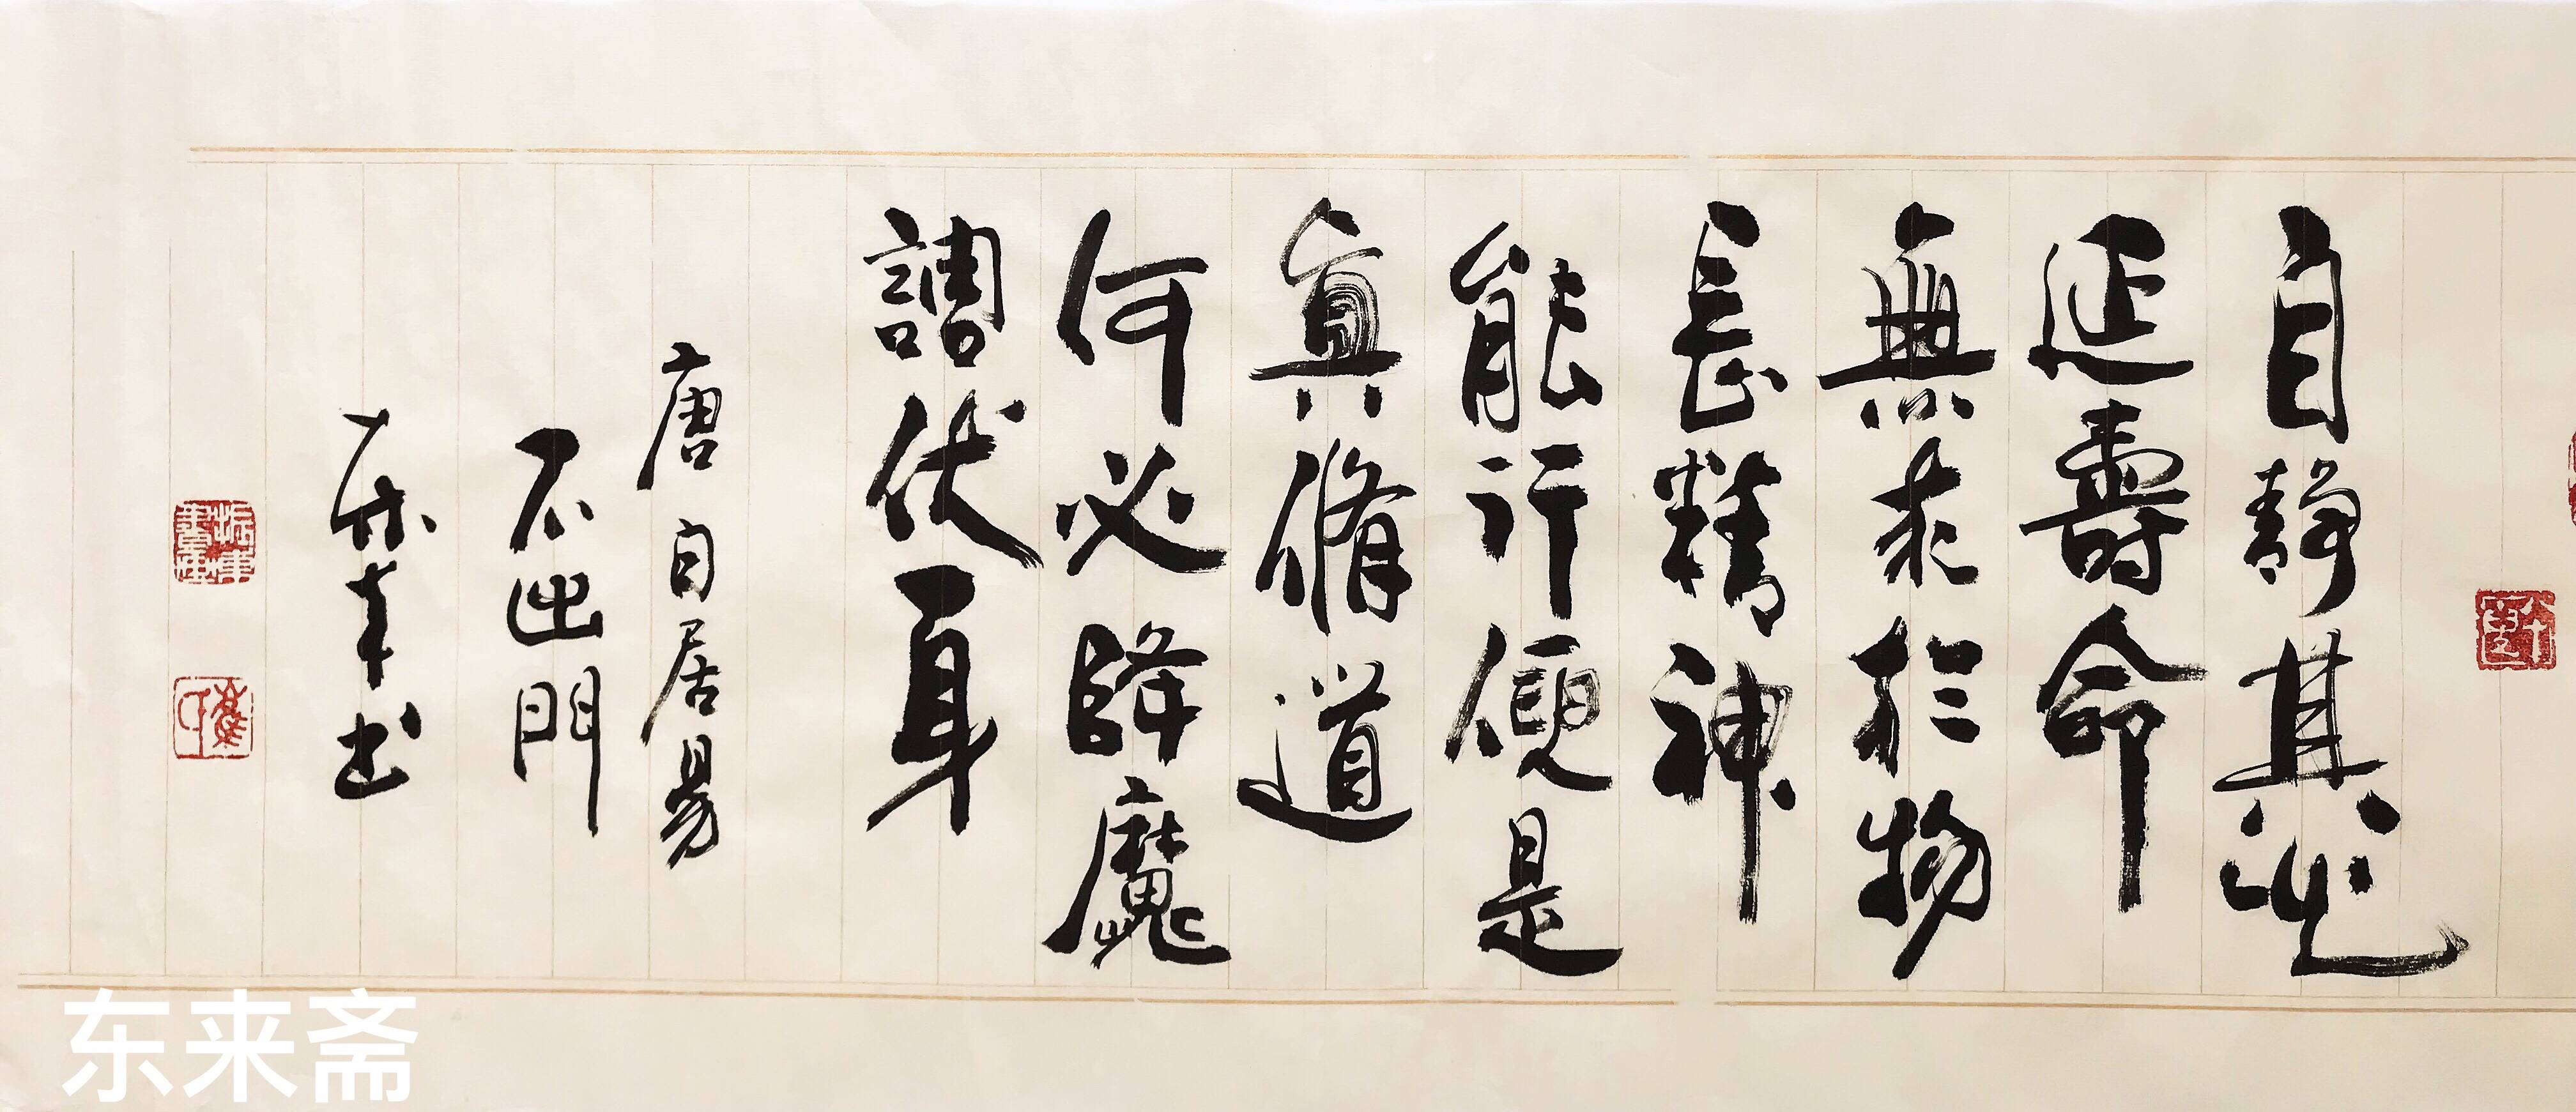 自静其心
延壽命
無求於物
長精神
能行便是
真脩道
何必降魔
調伏身
唐白居易
不出門
书
东来斋